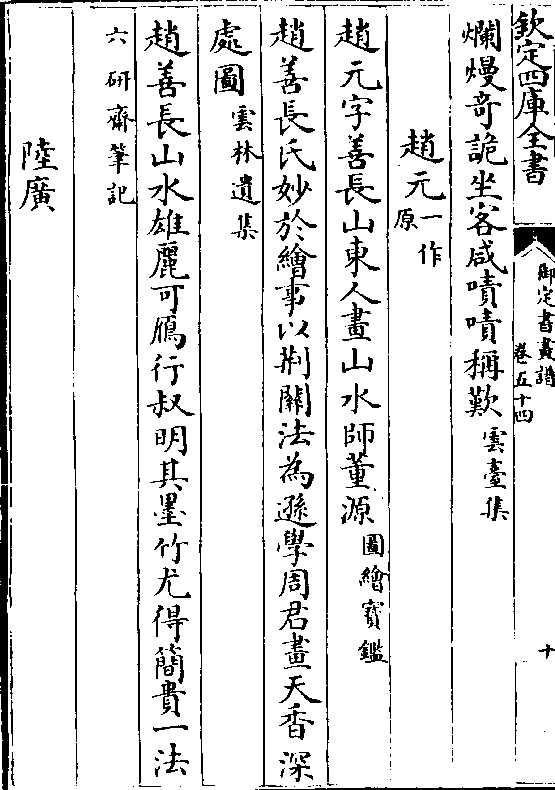 欽定四庫全書
御定書畫譜
卷五十四
十
爛熳竒詭坐客咸嘖嘖稱歎雲臺集
趙元一作原
趙元字善長山東人畫山水師董源圖繪寳鑑
趙善長氏妙於繪事以荆關法為遜學周君畫天香深
處圖雲林遺集
趙善長山水雄麗可鴈行叔明其墨竹尤得簡貴一法
六研齋筆記
陸廣